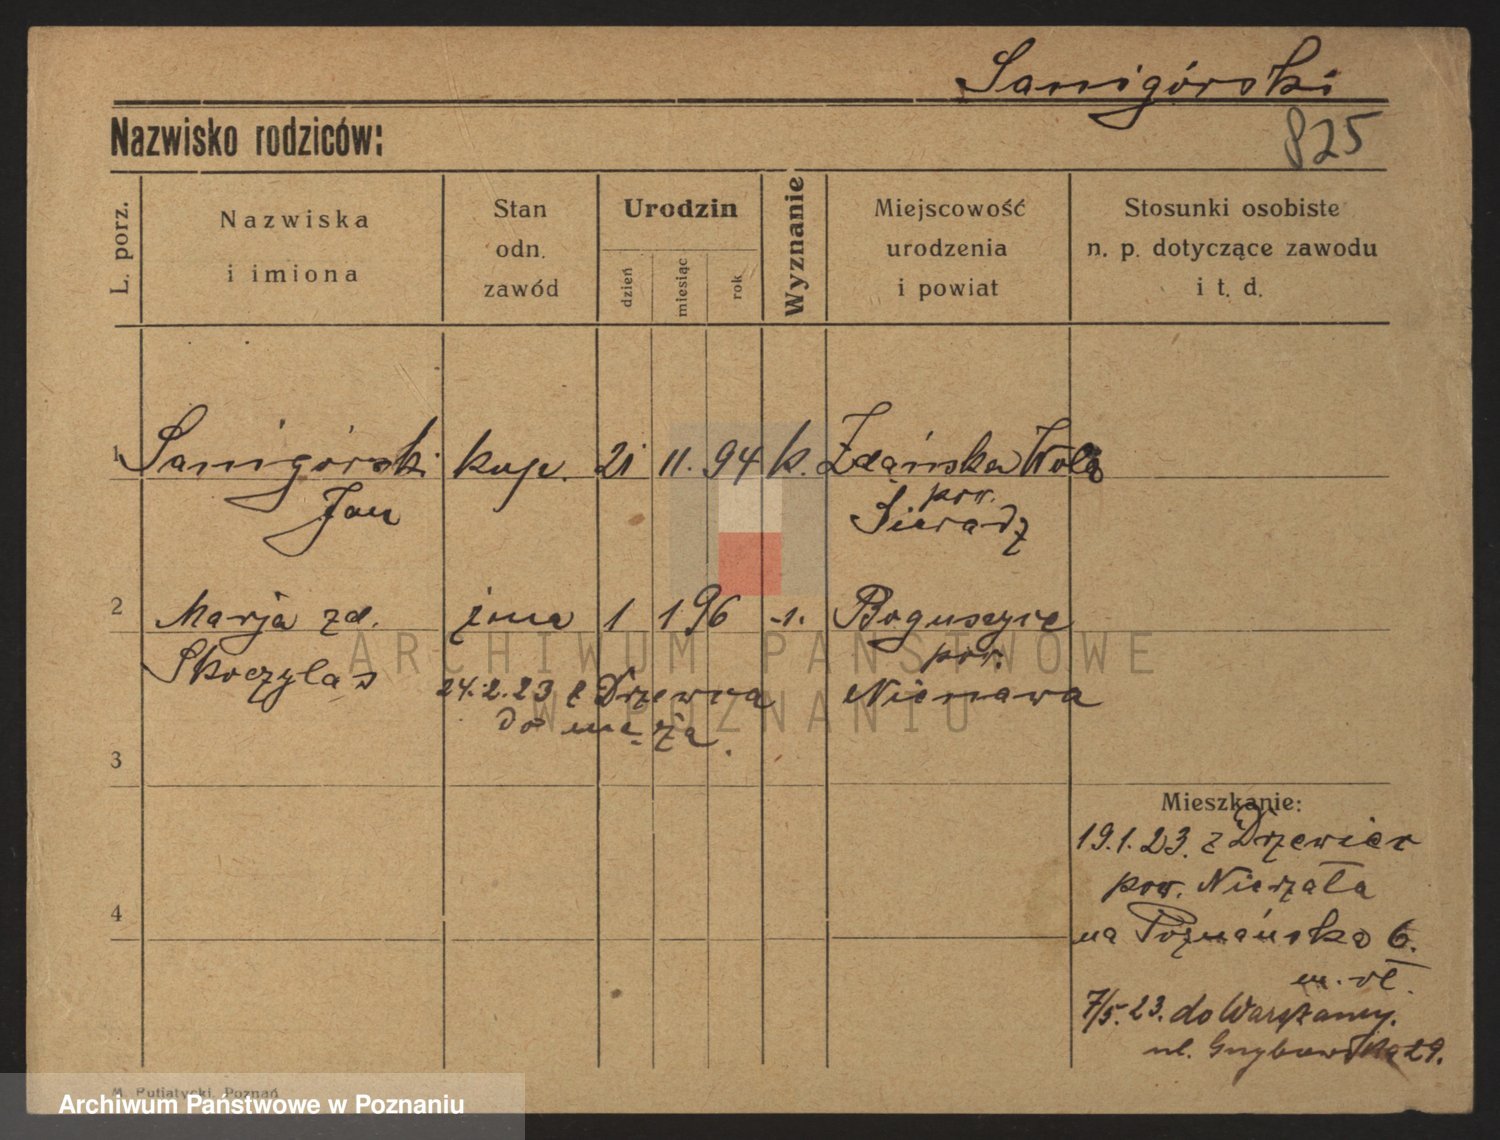 Sanigórski
825
Nazwisko rodziców:
L. porz.
Nazwiska
i imiona
Stan
odn.
zawód
Urodzin
dzień
miesiąc
rok
Wyznanie
Miejscowość
urodzenia
i powiat
Stosunki osobiste
n. p. dotyczące zawodu
i t. d.
1 Sanigórski kupc. 21 11. 94 k. Zdańska Wola
Jan pow. Sieradz
2 Marja zd. żona 1 1 96 -"- Boguszyce
Skoczylas pow.
24.2.23 z Drzewca Nienawa
do męża.
3
Mieszkanie:
19.1.23. z Drzewiec
pow. Nierzała
4
na Poznańska 6.
m. wł.
7/5.23. do Warszawy.
ul. Grzybowska 29.
M. Putiatycki, Poznań
ARCHIWUM PAŃSTWOWE
W POZNANIU
Archiwum Państwowe w Poznaniu